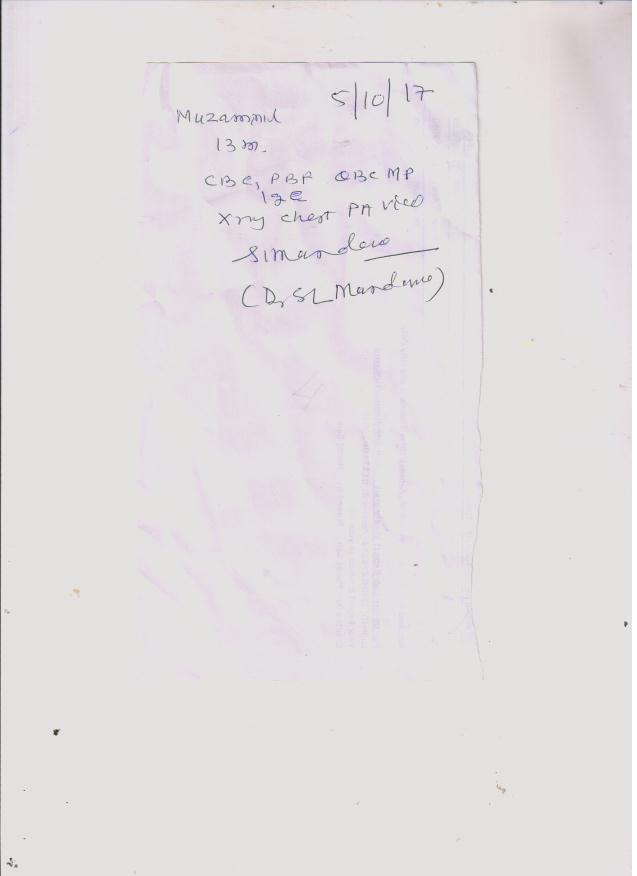 5/10/17
Muzammil
13 m.
CBC, PBF QBC MP
IgE
Xray chest PA view
(Dr SL